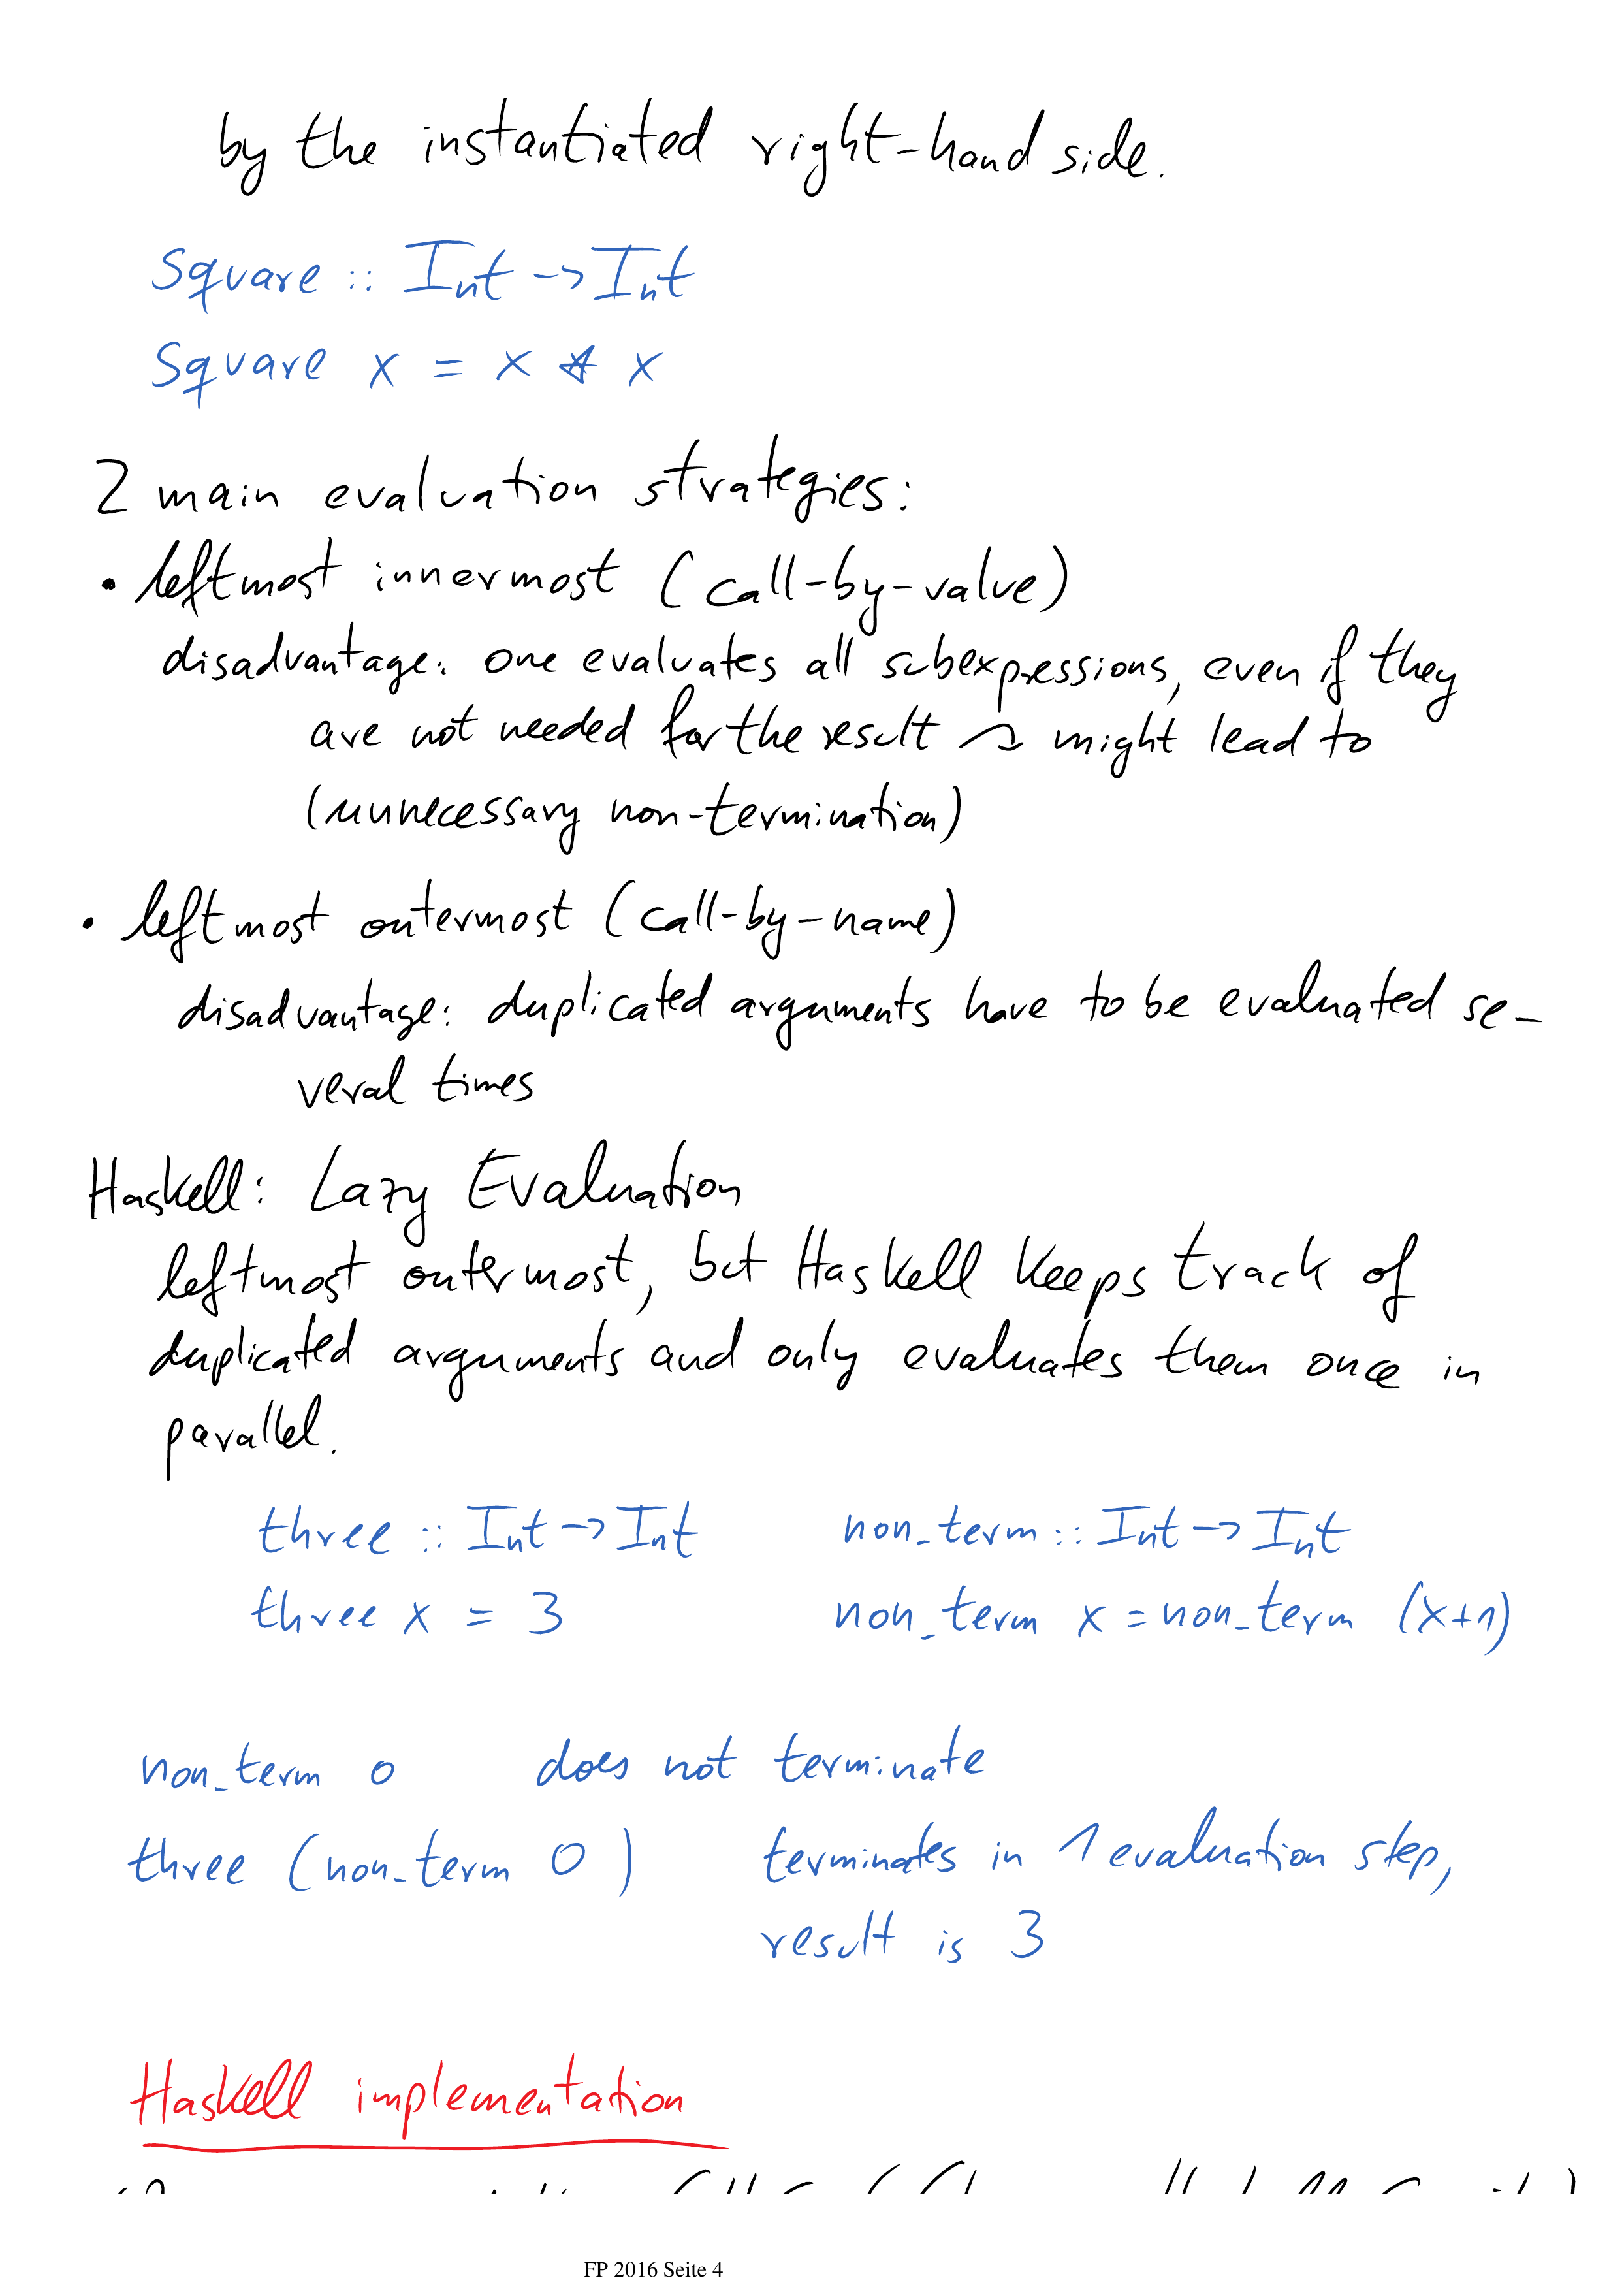 by the instantiated right-hand side.
square :: Int -> Int
square x = x * x
2 main evaluation strategies:
• leftmost innermost (call-by-value)
disadvantage: one evaluates all subexpressions, even if they
are not needed for the result ↝ might lead to
(unnecessary non-termination)
• leftmost outermost (call-by-name)
disadvantage: duplicated arguments have to be evaluated se-
veral times
Haskell: Lazy Evaluation
leftmost outermost, but Haskell keeps track of
duplicated arguments and only evaluates them once in
parallel.
three :: Int -> Int non_term :: Int -> Int
three x = 3 non_term x = non_term (x+1)
non_term 0 does not terminate
three (non_term 0) terminates in 1 evaluation step,
result is 3
Haskell implementation
FP 2016 Seite 4